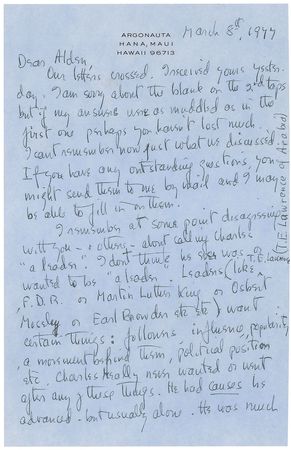 ARGONAUTA
HANA, MAUI
HAWAII 96713
March 8th, 1977
Dear Alden,
Our letters crossed. I received yours yester-
day. I am sorry about the blank on the 2nd tape
but if my answers were as muddled as in the
first one perhaps you haven't lost much.
I can't remember now just what we discussed.
If you have any outstanding questions, you
might send them to me by mail and I may
be able to fill in on them.
I remember at some point disagreeing
with you - & others - about calling Charles
"a leader". I don't think he ever was or
wanted to be "a leader". Leaders (like T.E. Lawrence
(T.E. Lawrence of Arabia)
F.D.R. or Martin Luther King or Osbert
Mosley or Earl Browder etc etc) want
certain things: followers, influence, popularity,
a movement behind them, political position
etc. Charles really never wanted or went
after any of these things. He had causes he
advanced - but usually alone. He was much